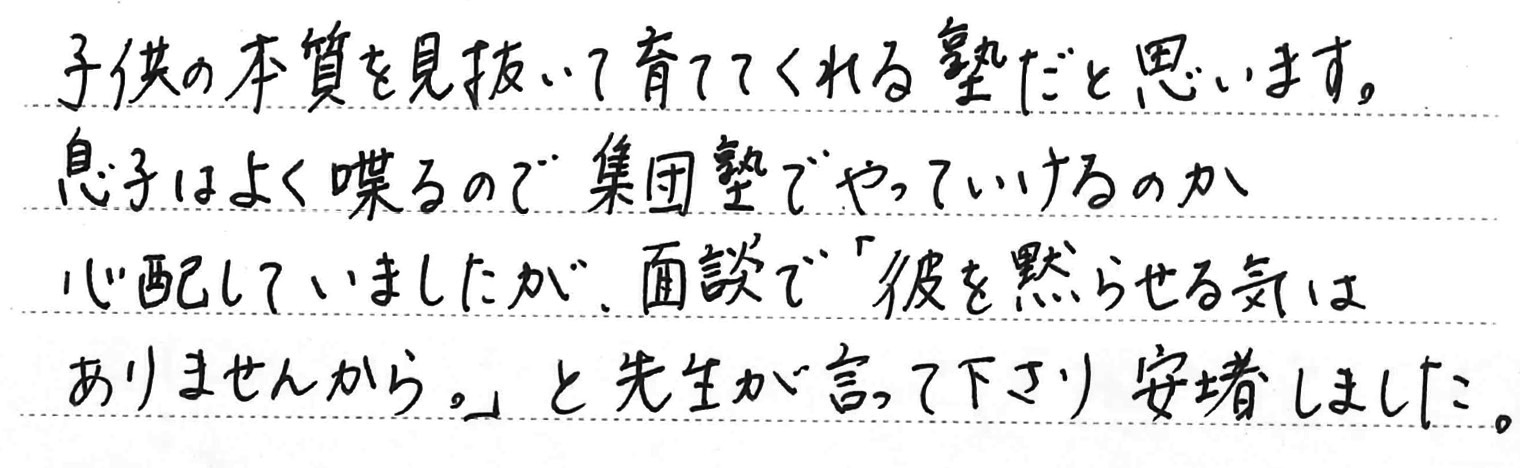 子供の本質を見抜いて育ててくれる塾だと思います。
息子はよく喋るので集団塾でやっていけるのか
心配していましたが、面談で「彼を黙らせる気は
ありませんから。」と先生が言って下さり安堵しました。